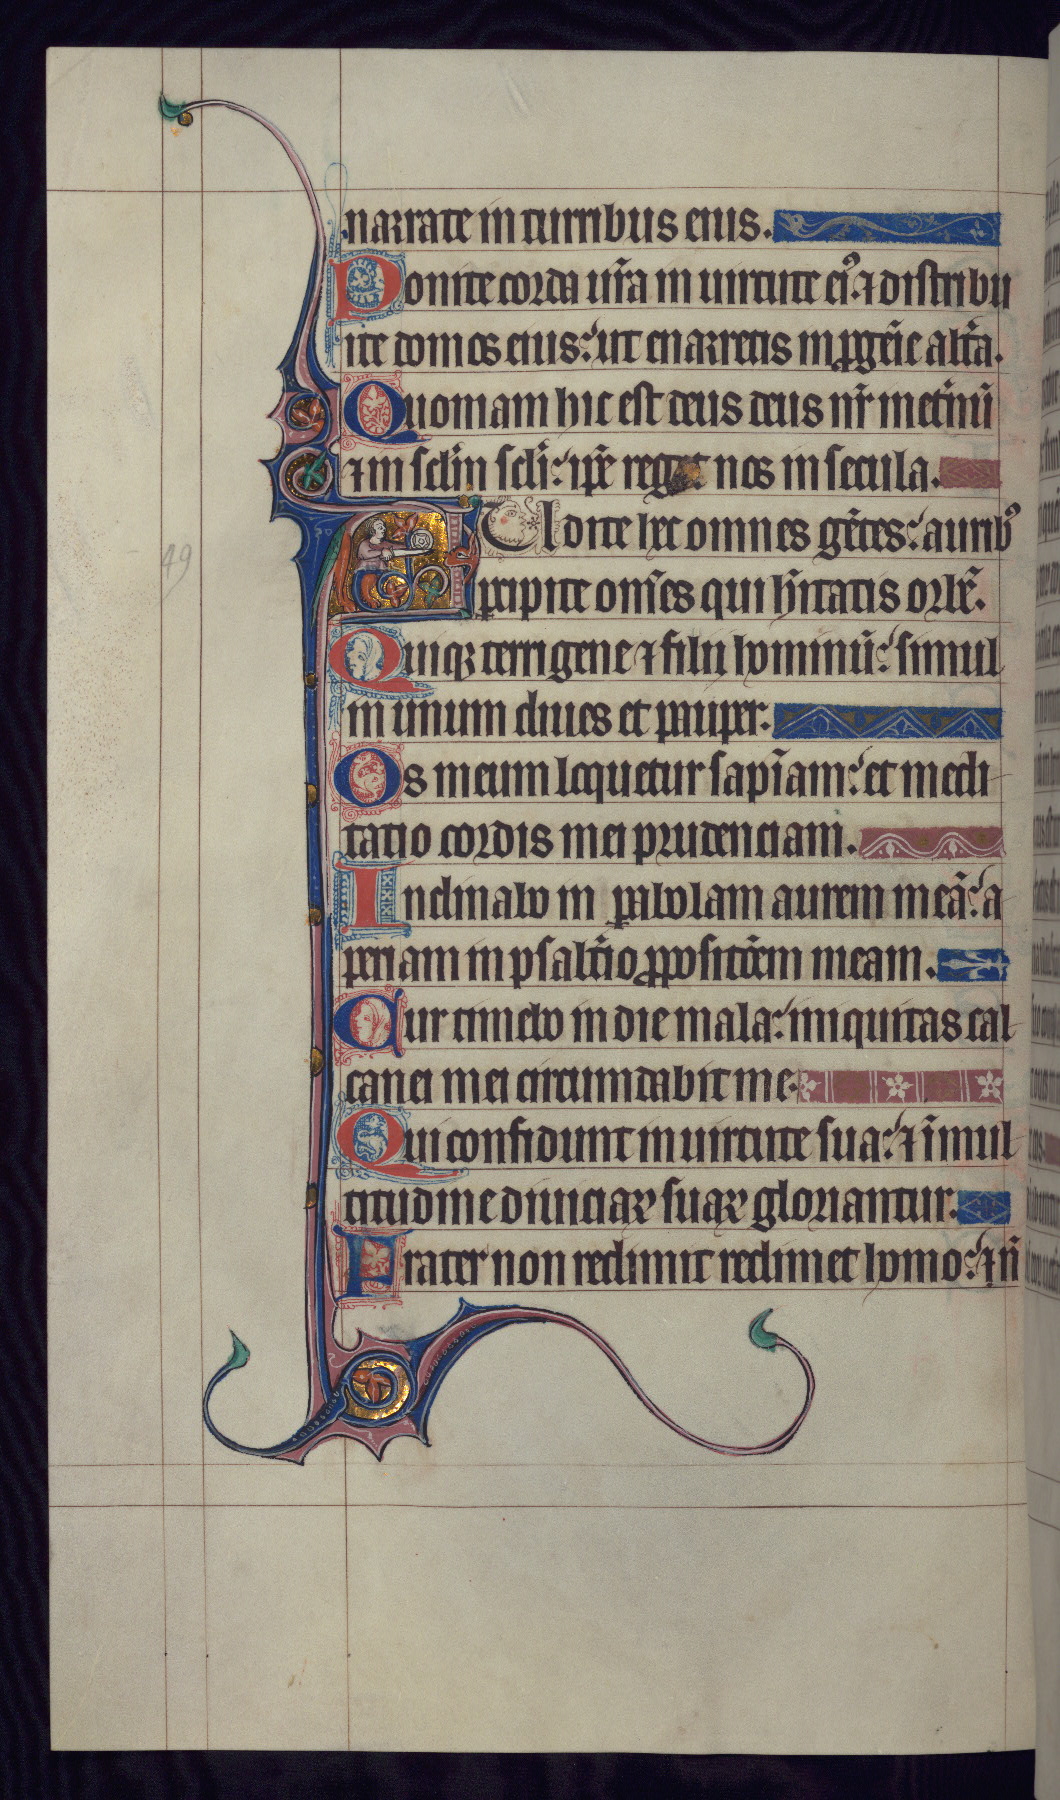 narrate in turribus eius.
Ponite corda ur̄a in uirtute ei⁹ ⁊ distribu
ite domos eius: ut enarretis in ꝓgēie alt̄a.
Quoniam hic est deus deus nr̄ in et̄nū
⁊ in sclm̄ scli: ip̄e reget nos in secula.
Audite hec omnes gētes: aurib⁹
49
percipite om̄es qui hītatis orbē.
Quiqꝫ terrigene ⁊ filii hominū: simul
in unum diues et pauper.
Os meum loquetur sapīam: et medi
tatio cordis mei prudenciam.
Inclinabo in parabolam aurem meā: a
periam in psalt̄io ꝓpositōem meam.
Cur timebo in die mala: iniquitas cal
canei mei circumdabit me.
Qui confidunt in uirtute sua: ⁊ ī mul
titudine diuiciaꝝ suaꝝ gloriantur.
Frater non redimit redimet homo: ⁊ n̄